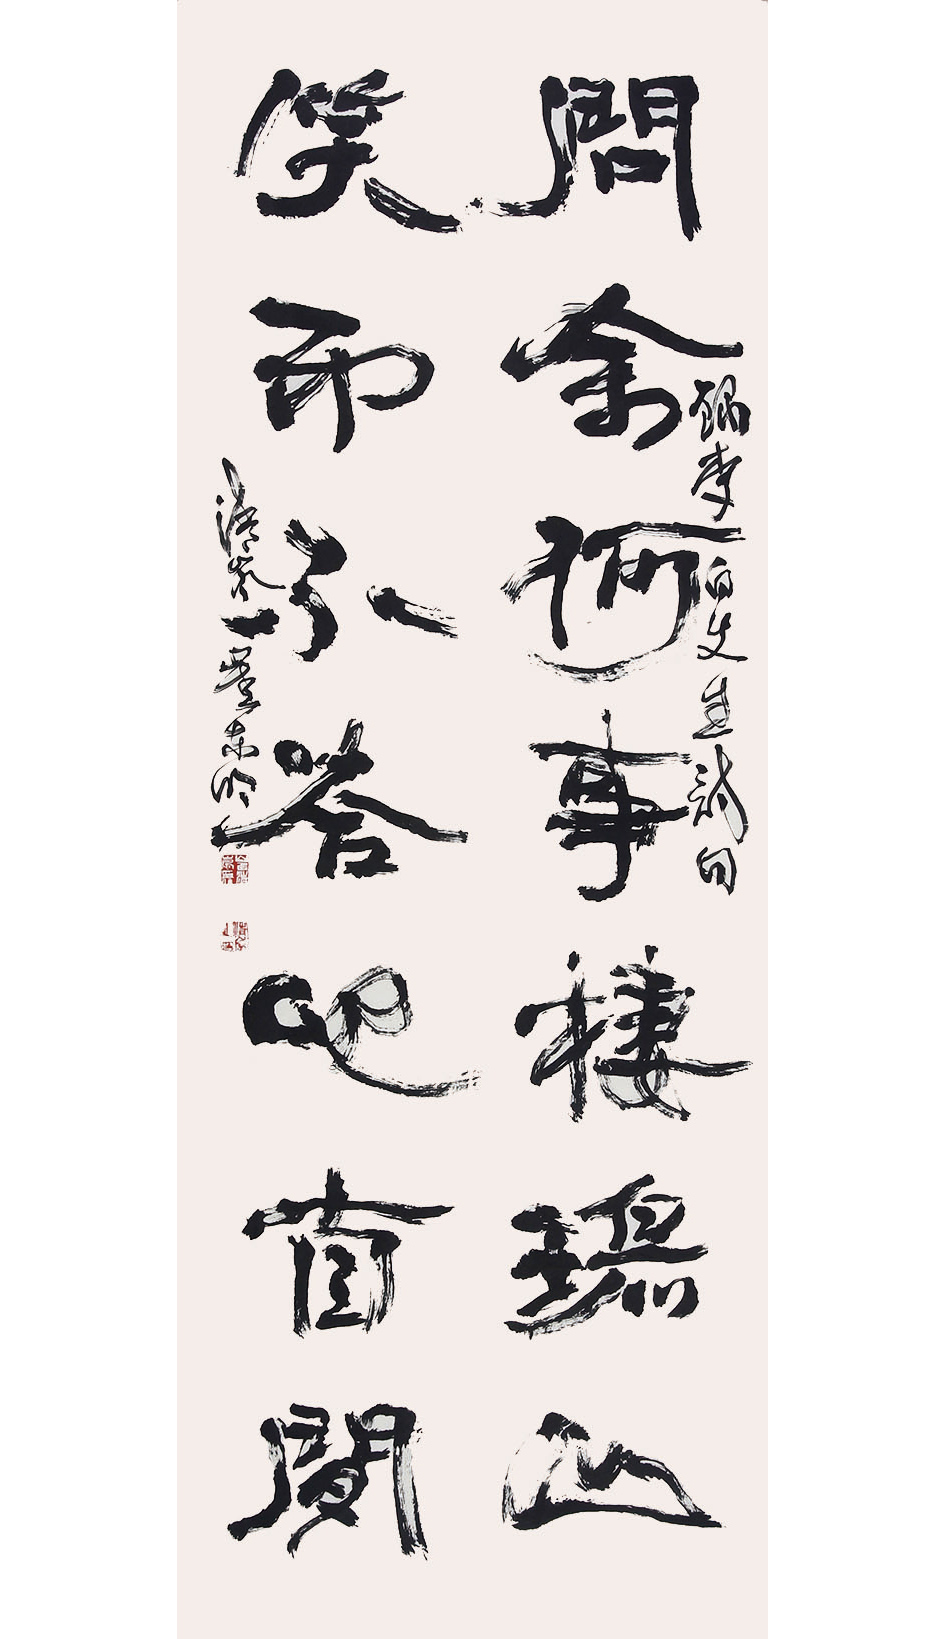 錄李白先生詩句
問余何事棲碧山
笑而不答心自閒